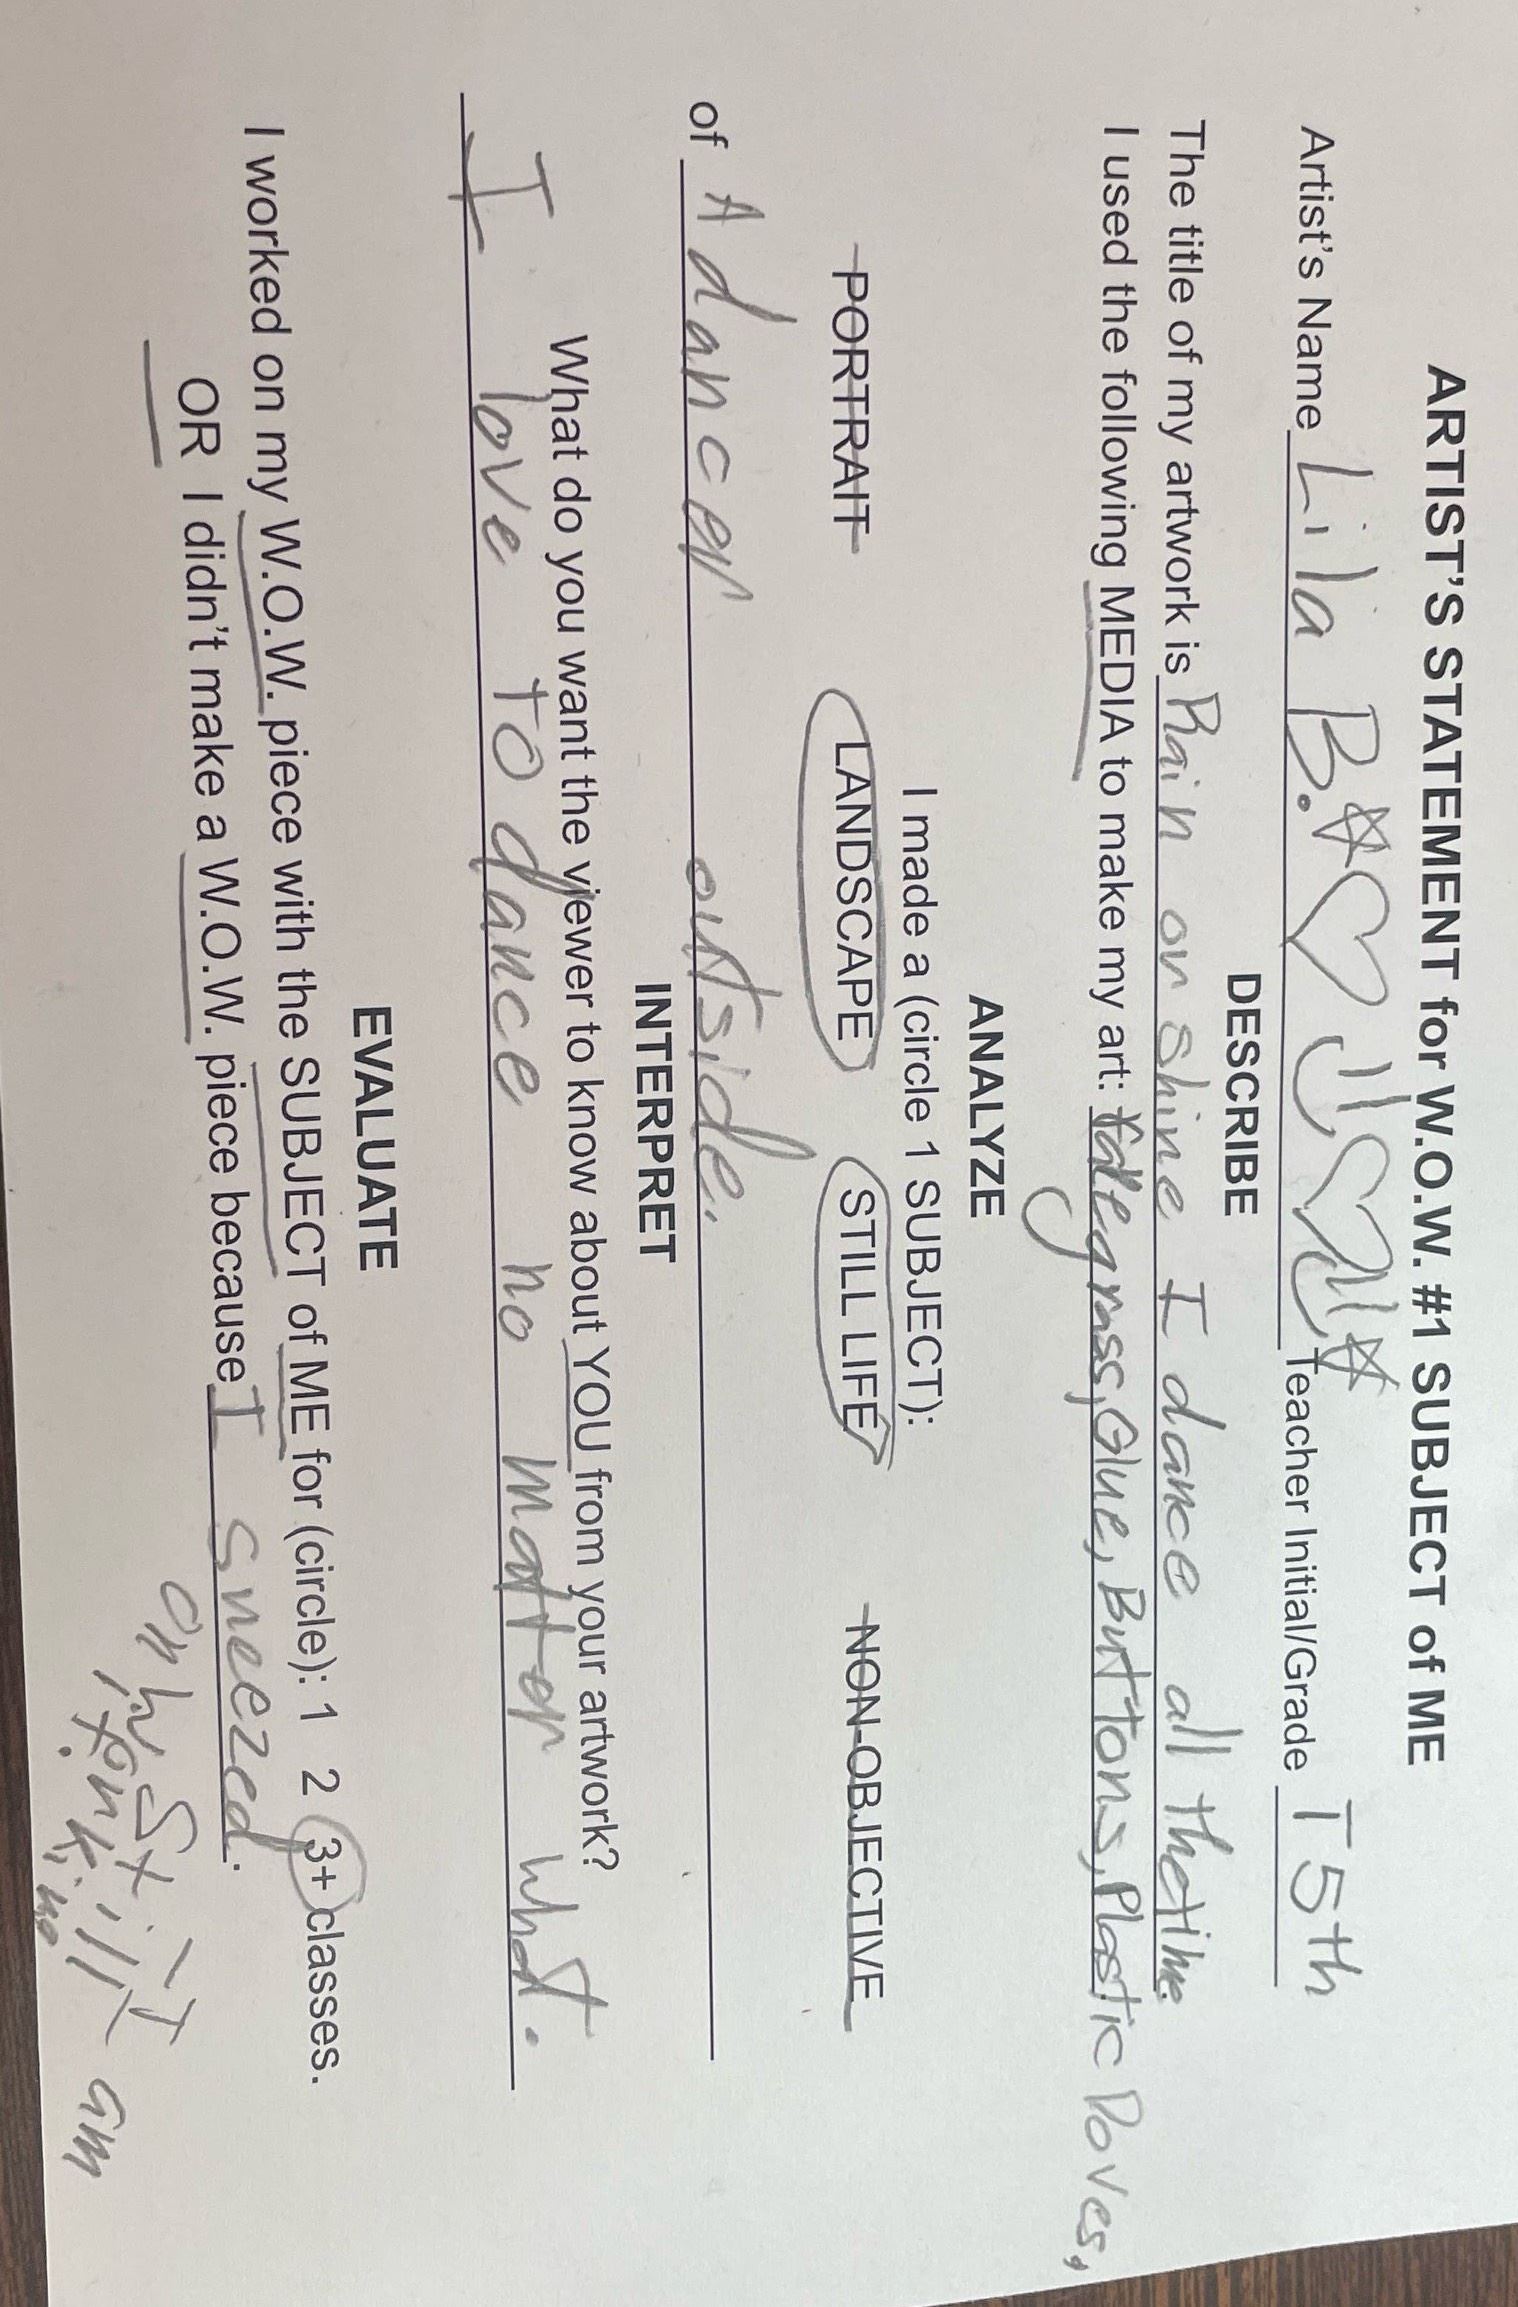 ARTIST'S STATEMENT for W.O.W. #1 SUBJECT of ME
Artist's Name Lila B. Teacher Initial/Grade T 5th
DESCRIBE
The title of my artwork is Rain or shine I dance all thetime.
I used the following MEDIA to make my art: fake grass, Glue, Buttons, Plastic Doves,
ANALYZE
I made a (circle 1 SUBJECT):
PORTRAIT LANDSCAPE STILL LIFE NON-OBJECTIVE
of A dancer outside.
INTERPRET
What do you want the viewer to know about YOU from your artwork?
I love to dance no matter what.
EVALUATE
I worked on my W.O.W. piece with the SUBJECT of ME for (circle): 1 2 3+ classes.
OR I didn't make a W.O.W. piece because I sneezed.
or h, Still I am